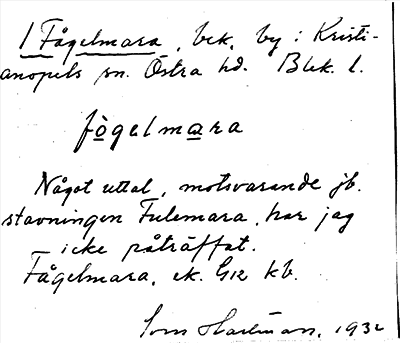 1 Fågelmara, bek. by i Kristi-
anopels sn. Östra hd. Blek. l.
fògelmara
Något uttal, motsvarande jb.
stavningen Fulemara, har jag
icke påträffat.
Fågelmara, ek. G12 kb.
Hartman, 1932